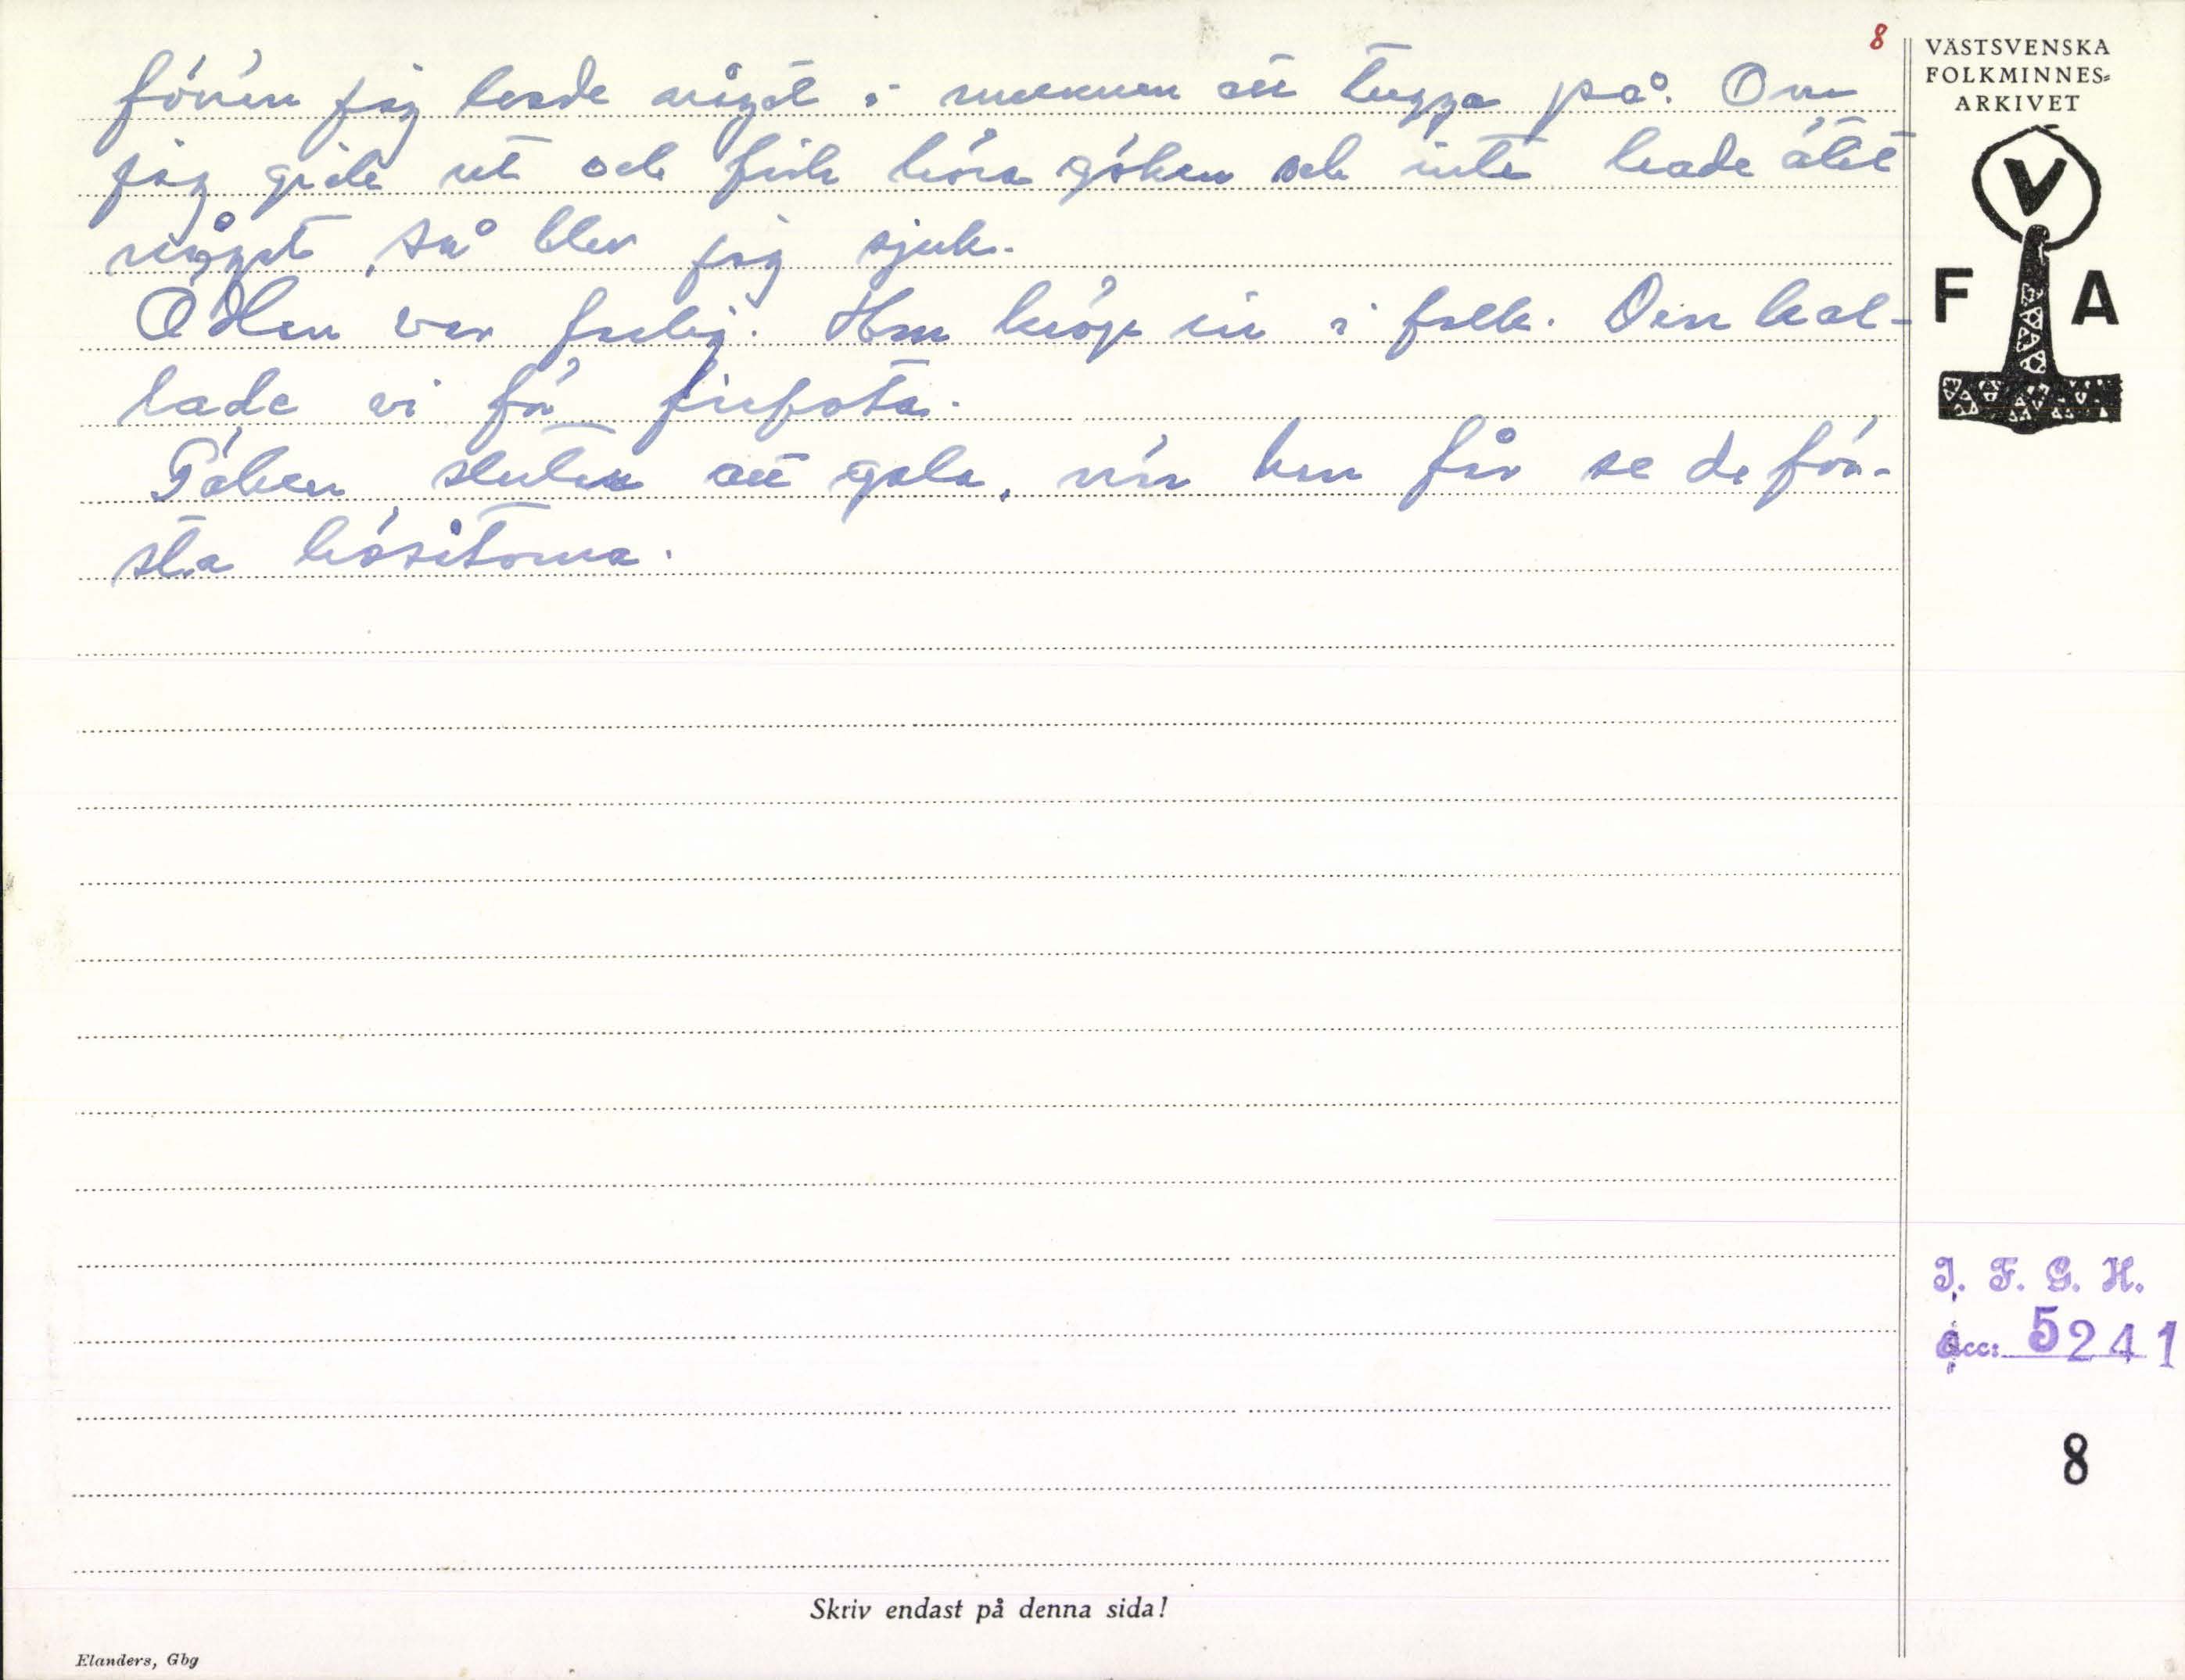 8
förrän jag hade något i munnen att tugga på. Om
jag gick ut och fick höra göken och inte hade ätit
något, så blev jag sjuk.
Ödlan var farlig. Hon kröp in i folk. Den kal-
lade vi för firfota.
Göken slutar att gala, när han får se de för-
sta hösåtorna.
VÄSTSVENSKA
FOLKMINNES-
ARKIVET
V
F A
I. F. G. H.
acc: 5241
8
Skriv endast på denna sida!
Elanders, Gbg